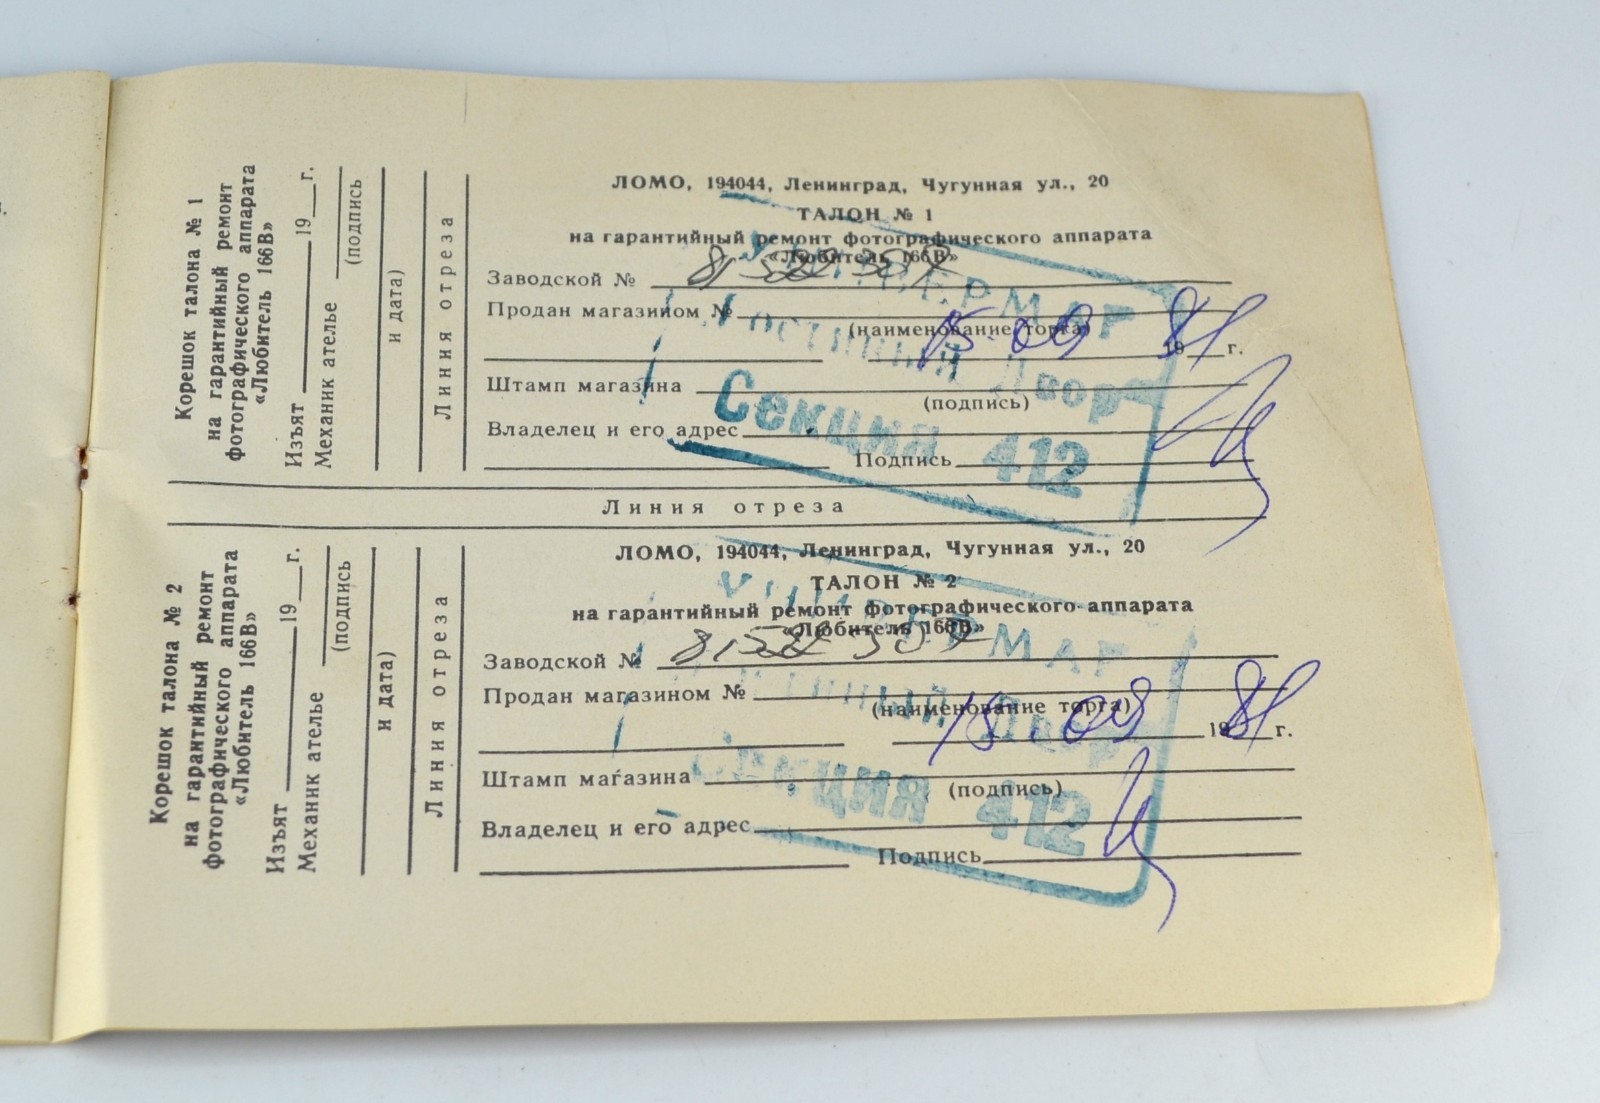 Корешок талона № 1
на гарантийный ремонт
фотографического аппарата
«Любитель 166В»
Изъят 19 г.
Механик ателье
(подпись
и дата)
Линия отреза
ЛОМО, 194044, Ленинград, Чугунная ул., 20
ТАЛОН № 1
на гарантийный ремонт фотографического аппарата
«Любитель 166В»
Заводской №
Продан магазином №
(наименование торга)
15 09 1981 г.
Штамп магазина
(подпись)
Владелец и его адрес
Подпись
УНИВЕРМАГ
Гостиный Двор
Секция 412
Линия отреза
Корешок талона № 2
на гарантийный ремонт
фотографического аппарата
«Любитель 166В»
Изъят 19 г.
Механик ателье
(подпись
и дата)
Линия отреза
ЛОМО, 194044, Ленинград, Чугунная ул., 20
ТАЛОН № 2
на гарантийный ремонт фотографического аппарата
«Любитель 166В»
Заводской №
Продан магазином №
(наименование торга)
15 09 1981 г.
Штамп магазина
(подпись)
Владелец и его адрес
Подпись
УНИВЕРМАГ
Гостиный Двор
Секция 412